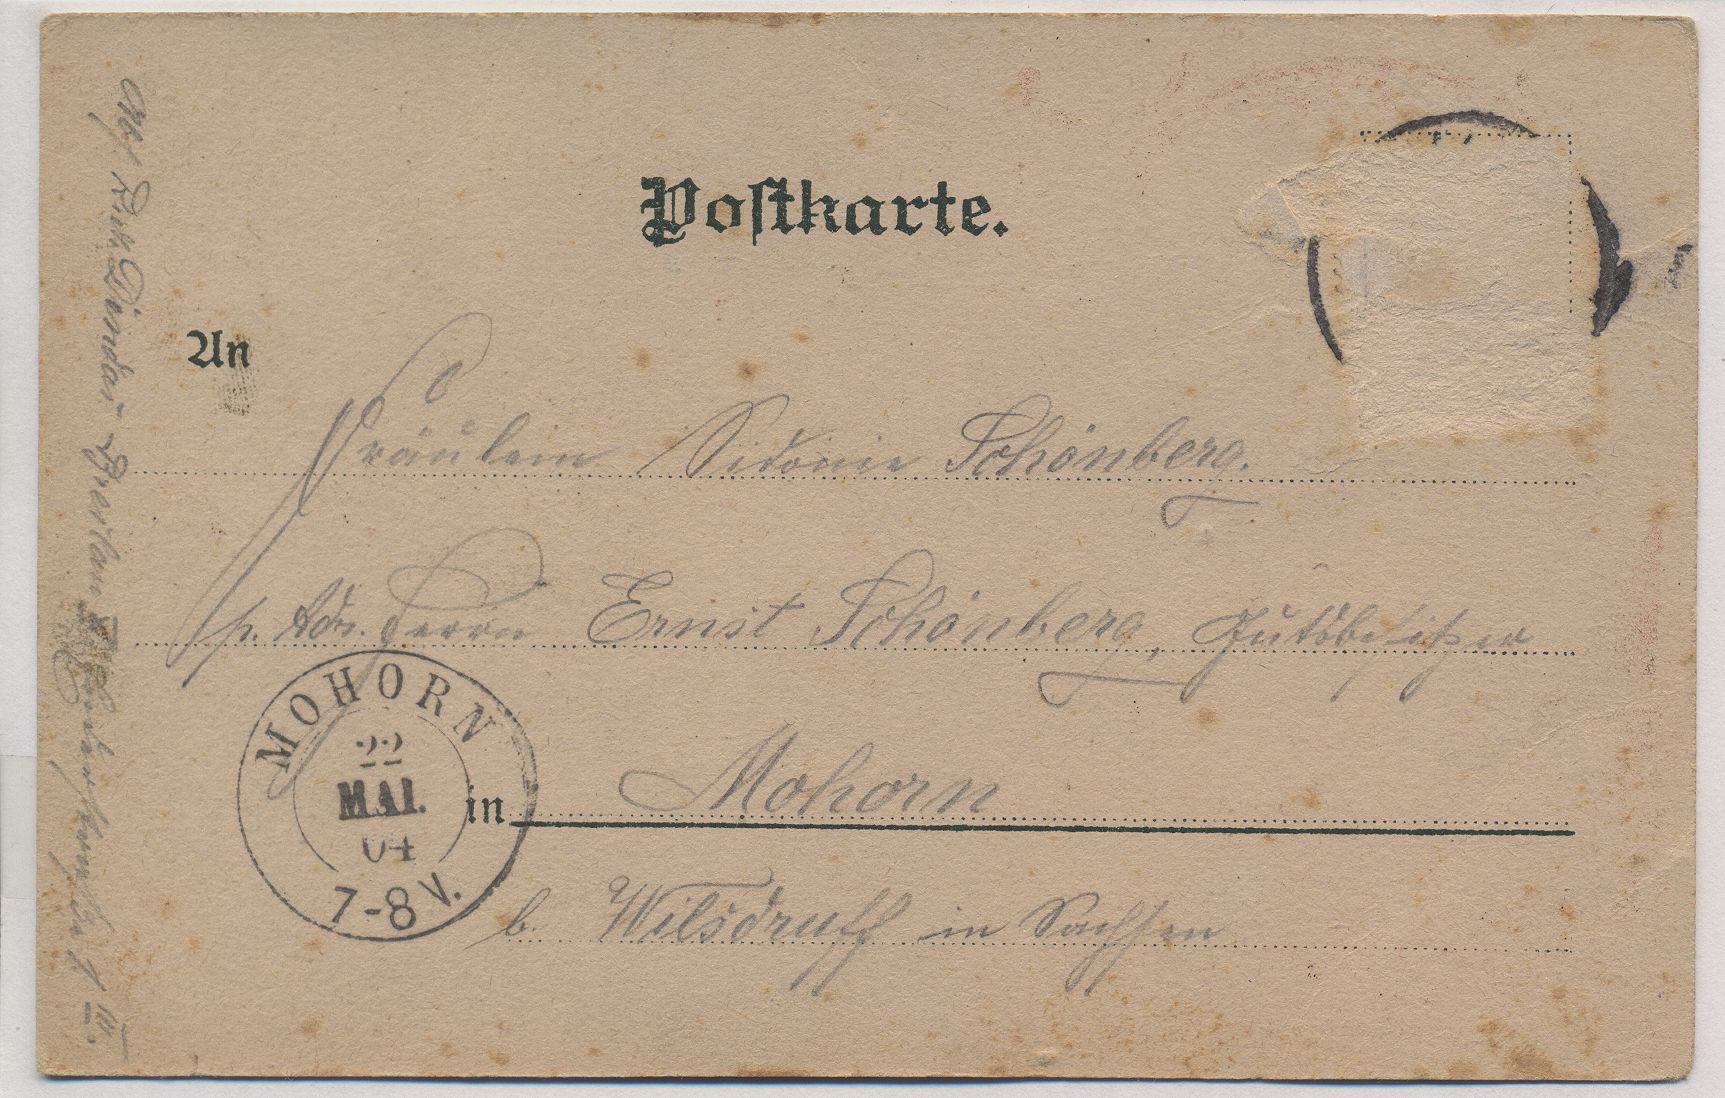 Postkarte.
An
Fräulein Sidonie Schönberg.
p. Adr. Herrn Ernst Schönberg, Gutsbesitzer
in Mohorn
b. Wilsdruff in Sachsen
MOHORN
22
MAI.
04
7-8 V.
III.